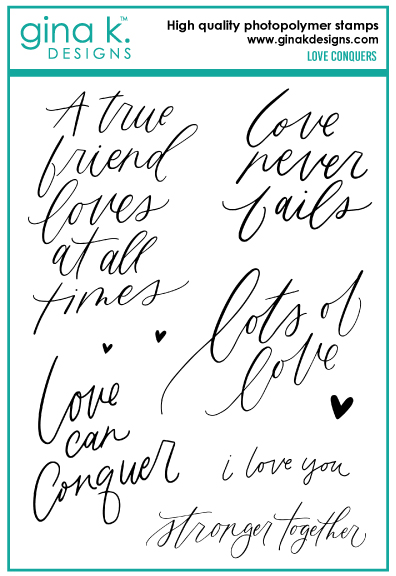 gina k.™
DESIGNS
High quality photopolymer stamps
www.ginakdesigns.com
LOVE CONQUERS
A true
friend
loves
at all
times
Love
never
fails
lots of
love
Love
can
Conquer
i love you
stronger together